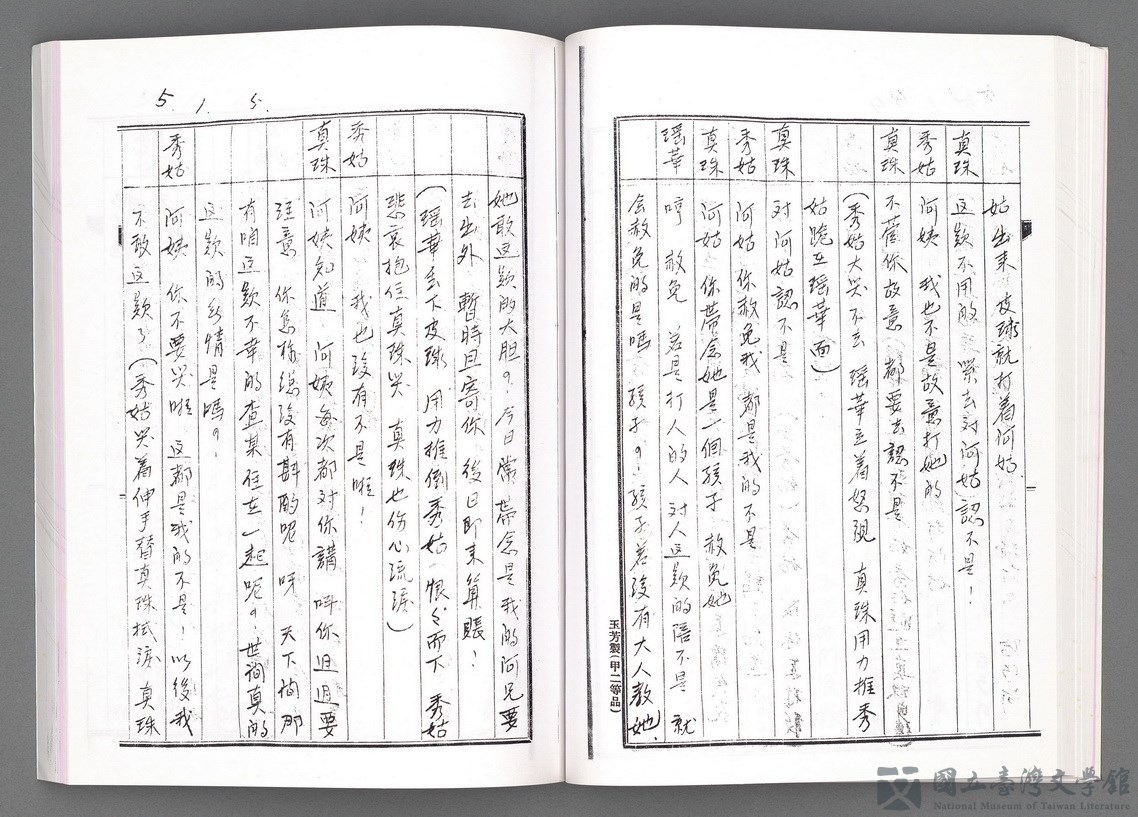 姑出来 皮球就打着阿姑
真珠 這款不用的 緊去对阿姑認不是!
秀姑 阿姨 我也不是故意打她的
真珠 不管你故意 都要去認不是
(秀姑大哭不去 瑶華立着怒視 真珠用力推秀
姑跪在瑶華面)
真珠 対阿姑認不是
秀姑 阿姑 你赦免我 都是我的不是
真珠 阿姑 你帶念她是一個孩子 赦免她
瑶華 哼 赦免 若是打人的人 对人這款的陪不是 就
会赦免的是嗎 孩子?! 孩子若沒有大人教她.
玉芳製(甲二等品)
5. 1. 5.
她敢這款的大胆?, 今日當 帶念是我的阿兄要
去出外 暫時且寄你 後日即来算賬!
(瑶華丢下皮球 用力推倒秀姑 恨々而下 秀姑
悲哀抱住真珠哭 真珠也伤心流淚)
秀姑 阿姨 我也沒有不是啦!
真珠 阿姨知道 阿姨每次都对你講 叫你迢迢要
注意 你怎樣總沒有斟酌呢 呀 天下間那
有咱這款不幸的查某 住在一起呢?, 世間真的
這款的無情是嗎?!
秀姑 阿姨 你不要哭啦 這都是我的不是! 以後我
不敢這款了 (秀姑哭着伸手替真珠拭淚 真珠
國立臺灣文學館
National Museum of Taiwan Literature